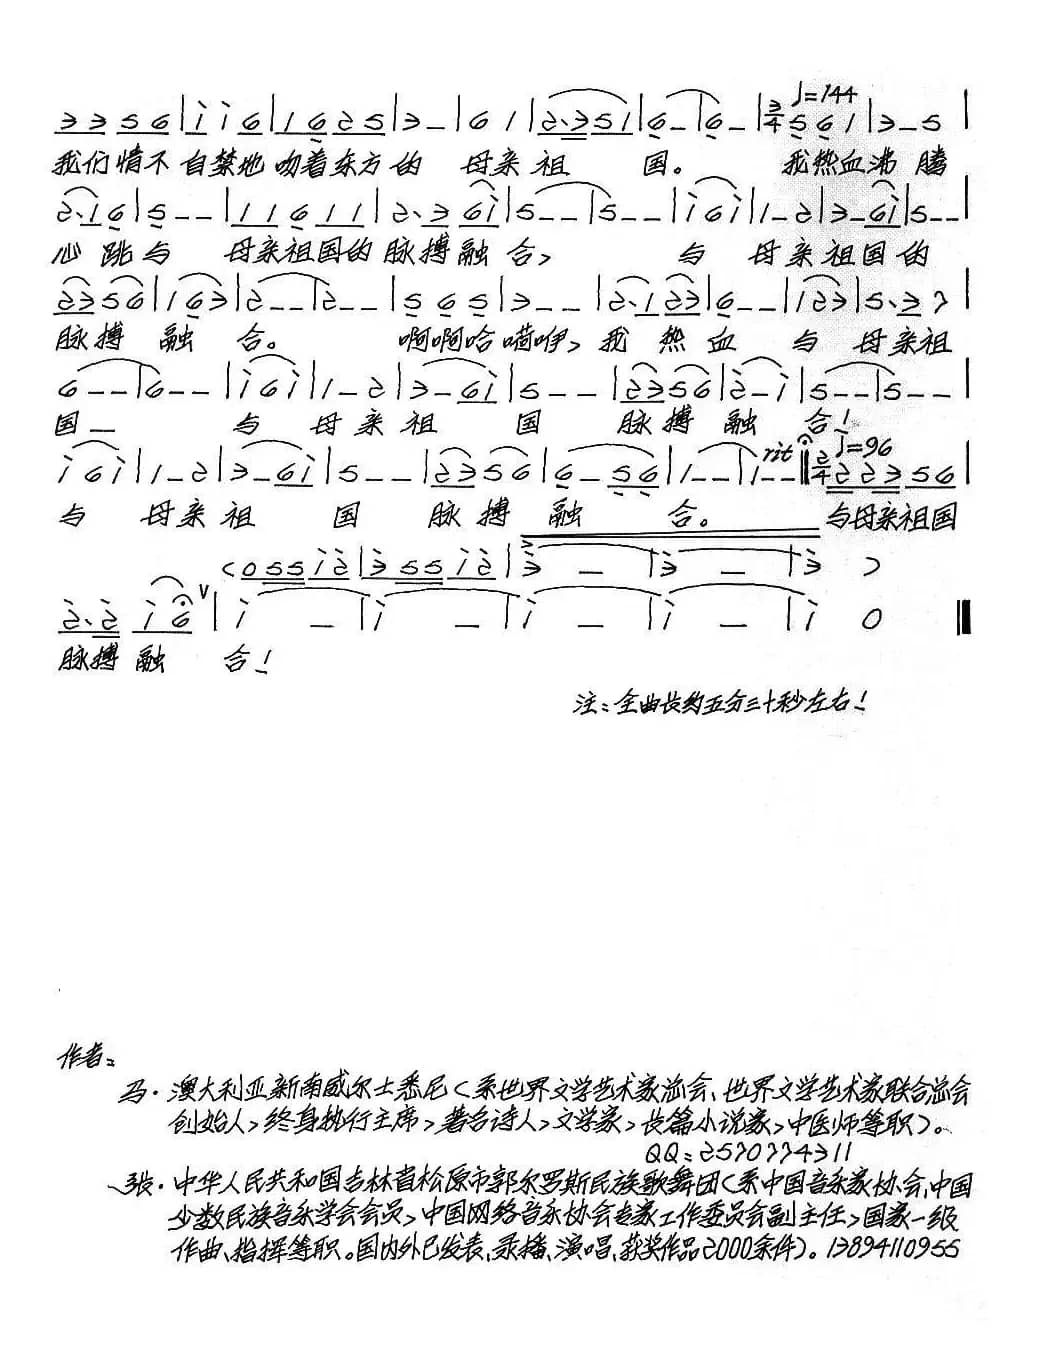 ♩=144
3 3 5 6 | i i 6 | 1 6 2 5 | 3 – | 6 1 | 2· 3 5 1 | 6 – | 6 – | 3/4 5 6 1 | 3 – 5 |
我们情不自禁地吻着东方的 母亲祖 国。 我热血沸腾
2· 1 6 | 5 – – | 1 1 6 1 1 | 2· 3 6 i | 5 – – | 5 – – | i 6 i | 1 – 2 | 3 – 6 i | 5 – – |
心跳与 母亲祖国的脉搏融合, 与 母亲祖国的
2 3 5 6 | 1 6 3 | 2 – – | 2 – – | 5 6 5 | 3 – – | 2· 1 2 3 | 6 – – | 1 2 3 | 5· 3 7 |
脉搏 融 合。 啊啊哈嗬咿, 我 热 血 与 母亲祖
6 – – | 6 – – | i 6 i | 1 – 2 | 3 – 6 i | 5 – – | 2 3 5 6 | 2 – i | 5 – – | 5 – – |
国 – 与 母亲祖 国 脉搏融 合!
rit ♩=96
i 6 i | 1 – 2 | 3 – 6 i | 5 – – | 2 3 5 6 | 6 – 5 6 | 1 – – | 1 – – ‖ 2/4 2 2 2 3 5 6 |
与 母亲祖 国 脉搏 融 合。 与母亲祖国
< 0 5 5 i 2 | 3 5 5 i 2 | 3 – | 3 – | 3 >
2· 2 i 6 ∨ | i – | i – | i – | i – | i 0 ‖
脉搏融 合!
注:全曲长约五分三十秒左右!
作者:
马·澳大利亚新南威尔士悉尼(系世界文学艺术家总会、世界文学艺术家联合总会
创始人,终身执行主席,著名诗人,文学家,长篇小说家,中医师等职)。
QQ:2570774311
张·中华人民共和国吉林省松原市郭尔罗斯民族歌舞团(系中国音乐家协会、中国
少数民族音乐学会会员,中国网络音乐协会专家工作委员会副主任,国家一级
作曲、指挥等职。国内外已发表、录播、演唱、获奖作品2000余件)。13894110955